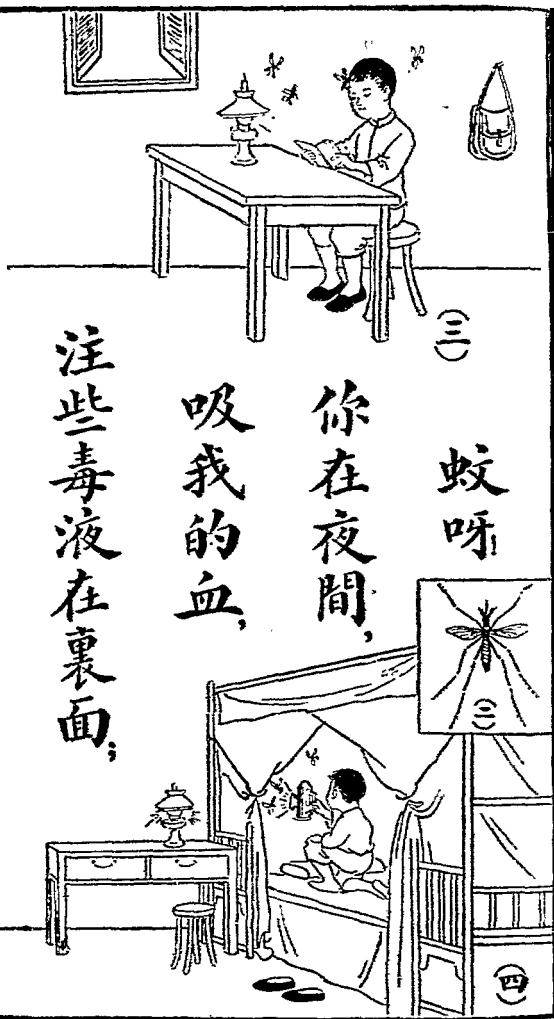 (三)
蚊呀!
你在夜間,
吸我的血,
注些毒液在裏面;
(二)
(四)